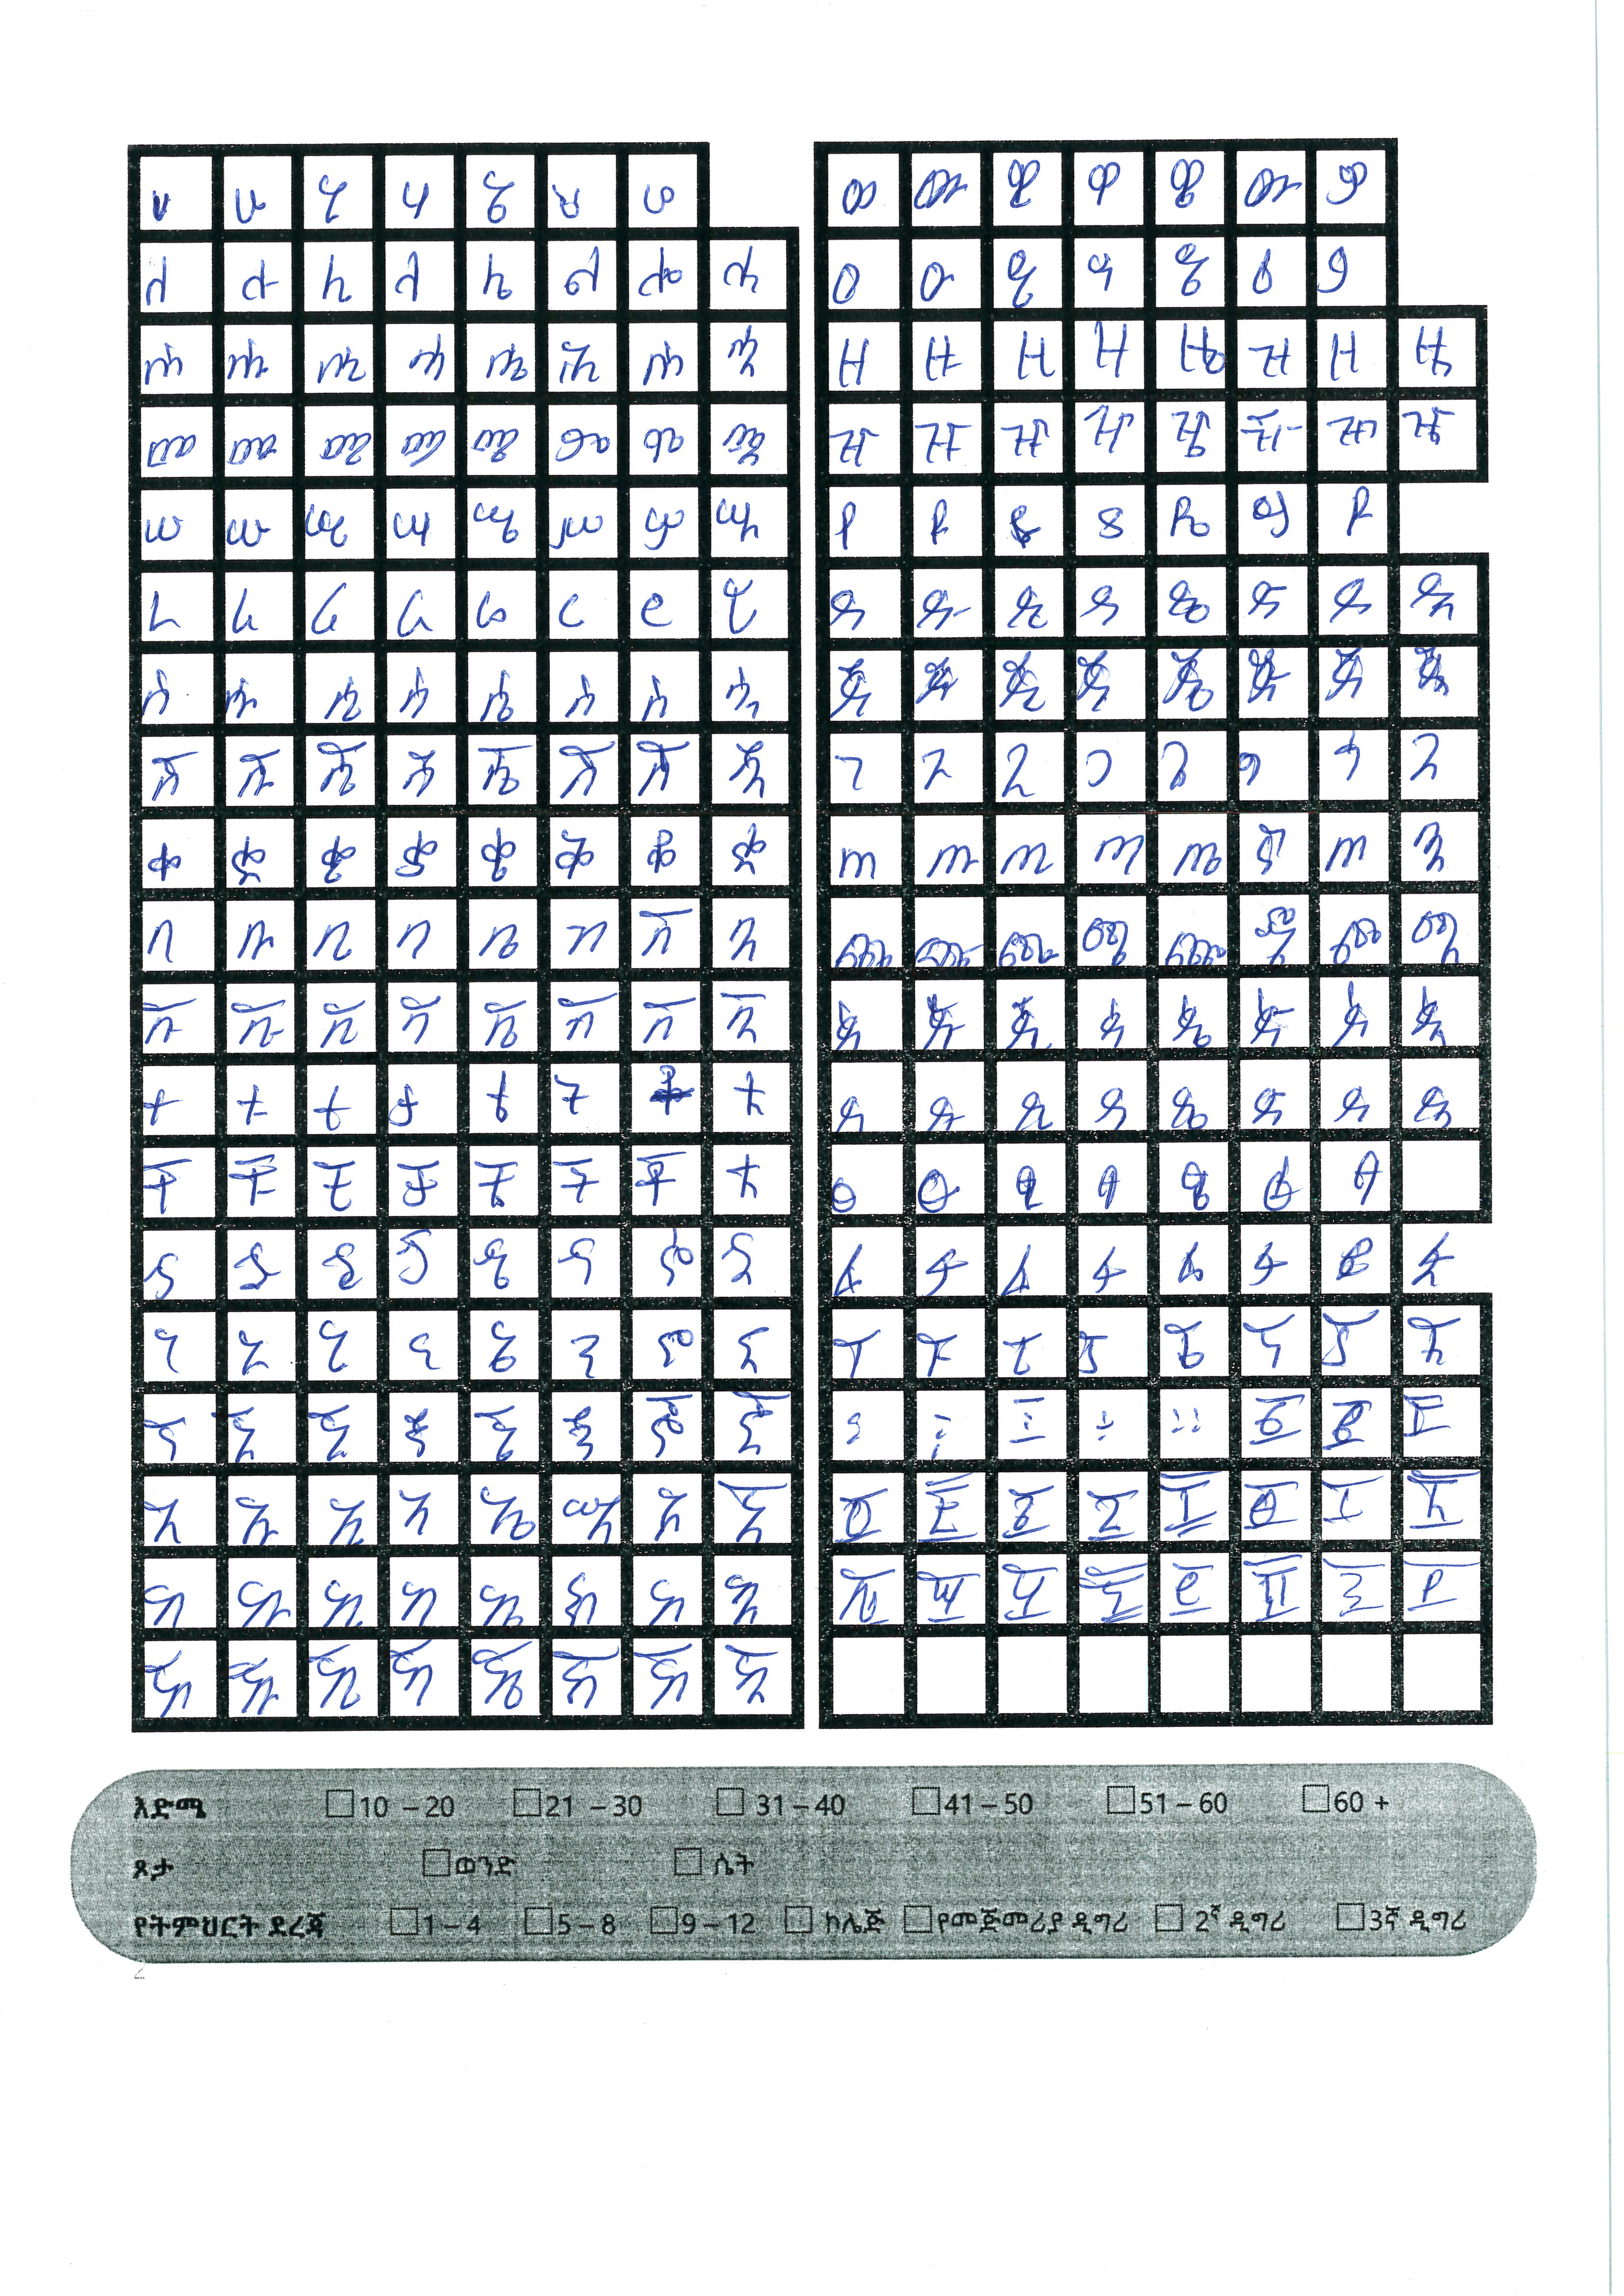 ሀ ሁ ሂ ሃ ሄ ህ ሆ
ለ ሉ ሊ ላ ሌ ል ሎ ሏ
ሐ ሑ ሒ ሓ ሔ ሕ ሖ ሗ
መ ሙ ሚ ማ ሜ ም ሞ ሟ
ሠ ሡ ሢ ሣ ሤ ሥ ሦ ሧ
ረ ሩ ሪ ራ ሬ ር ሮ ሯ
ሰ ሱ ሲ ሳ ሴ ስ ሶ ሷ
ሸ ሹ ሺ ሻ ሼ ሽ ሾ ሿ
ቀ ቁ ቂ ቃ ቄ ቅ ቆ ቋ
በ ቡ ቢ ባ ቤ ብ ቦ ቧ
ቨ ቩ ቪ ቫ ቬ ቭ ቮ ቯ
ተ ቱ ቲ ታ ቴ ት ቶ ቷ
ቸ ቹ ቺ ቻ ቼ ች ቾ ቿ
ኀ ኁ ኂ ኃ ኄ ኅ ኆ ኋ
ነ ኑ ኒ ና ኔ ን ኖ ኗ
ኘ ኙ ኚ ኛ ኜ ኝ ኞ ኟ
አ ኡ ኢ ኣ ኤ እ ኦ ኧ
ከ ኩ ኪ ካ ኬ ክ ኮ ኳ
ኸ ኹ ኺ ኻ ኼ ኽ ኾ ዃ
ወ ዉ ዊ ዋ ዌ ው ዎ
ዐ ዑ ዒ ዓ ዔ ዕ ዖ
ዘ ዙ ዚ ዛ ዜ ዝ ዞ ዟ
ዠ ዡ ዢ ዣ ዤ ዥ ዦ ዧ
የ ዩ ዪ ያ ዬ ይ ዮ
ደ ዱ ዲ ዳ ዴ ድ ዶ ዷ
ጀ ጁ ጂ ጃ ጄ ጅ ጆ ጇ
ገ ጉ ጊ ጋ ጌ ግ ጎ ጓ
ጠ ጡ ጢ ጣ ጤ ጥ ጦ ጧ
ጨ ጩ ጪ ጫ ጬ ጭ ጮ ጯ
ጰ ጱ ጲ ጳ ጴ ጵ ጶ ጷ
ጸ ጹ ጺ ጻ ጼ ጽ ጾ ጿ
ፀ ፁ ፂ ፃ ፄ ፅ ፆ
ፈ ፉ ፊ ፋ ፌ ፍ ፎ ፏ
ፐ ፑ ፒ ፓ ፔ ፕ ፖ ፗ
። ፩ ፪ ፫
፬ ፭ ፮ ፯ ፰ ፱ ፲ ፳
፴ ፵ ፶ ፷ ፸ ፹ ፺ ፻
እድሜ 10 – 20 21 – 30 31 – 40 41 – 50 51 – 60 60 +
ጾታ ወንድ ሴት
የትምህርት ደረጃ 1 – 4 5 – 8 9 – 12 ኮሌጅ የመጀመሪያ ዲግሪ 2ኛ ዲግሪ 3ኛ ዲግሪ